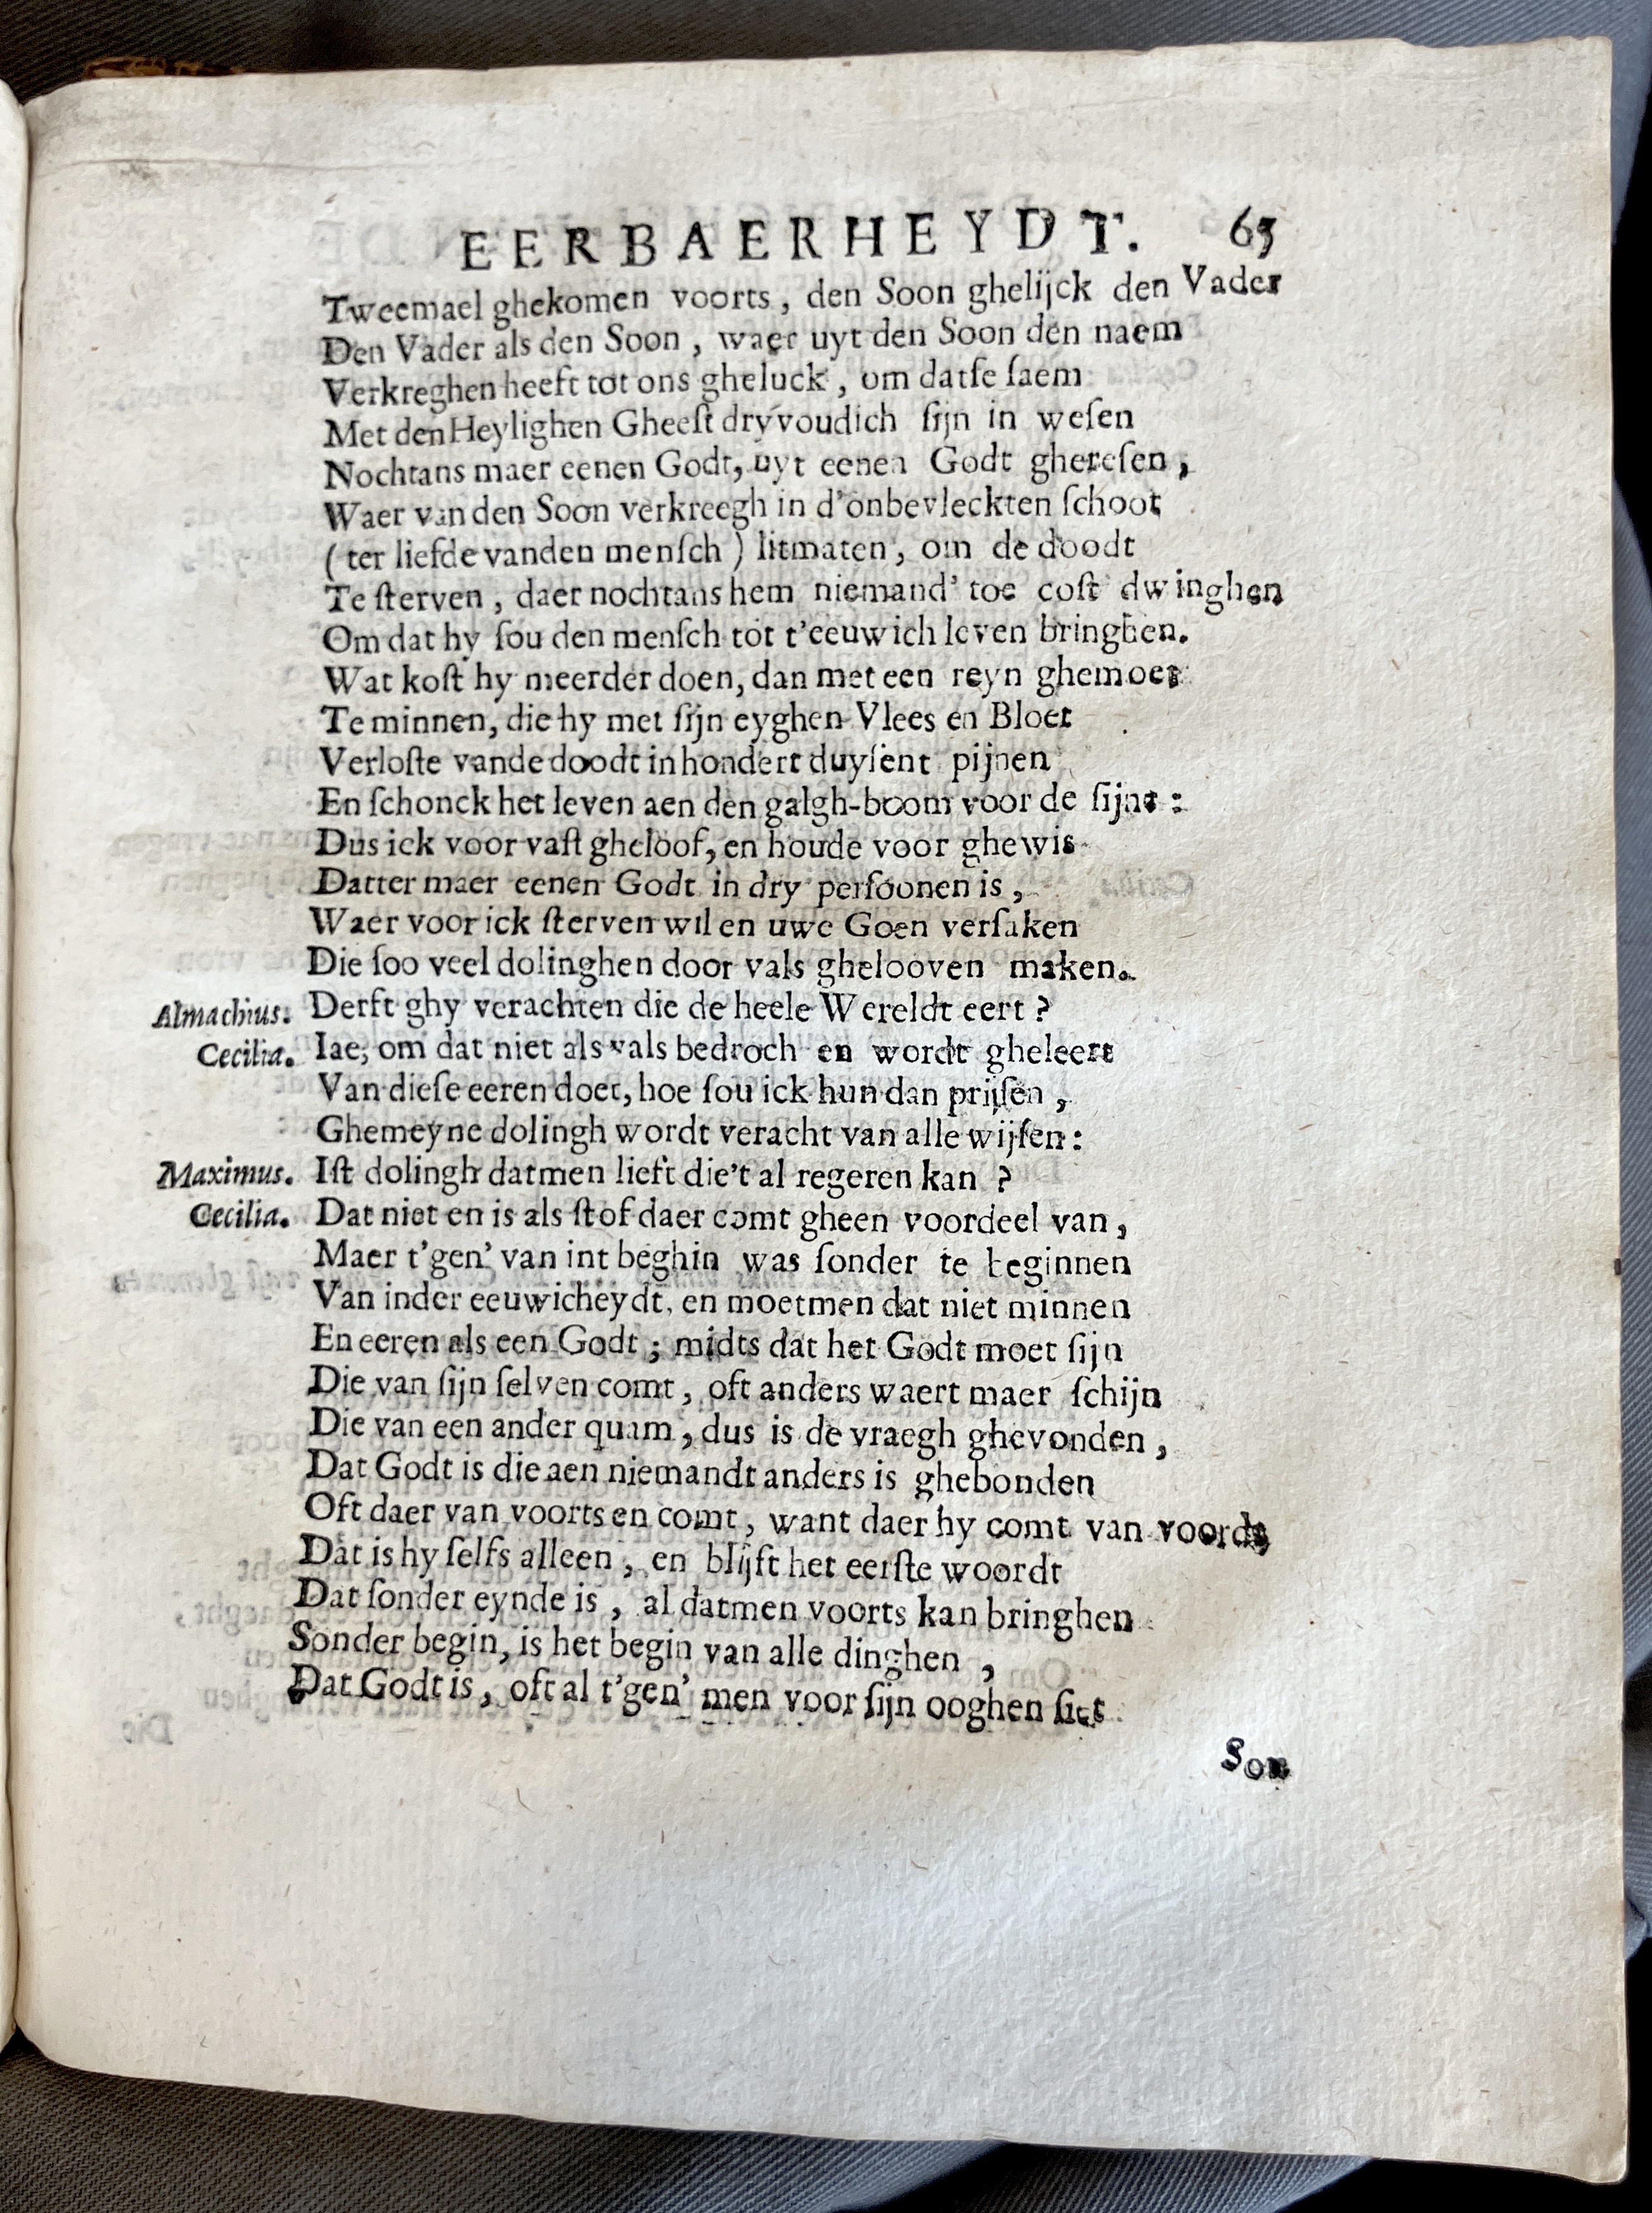 EERBAERHEYDT. 65
Tweemael ghekomen voorts, den Soon ghelijck den Vader
Den Vader als den Soon, waer uyt den Soon den naem
Verkreghen heeft tot ons gheluck, om datſe ſaem
Met den Heylighen Gheeſt dryvoudich ſijn in weſen
Nochtans maer eenen Godt, uyt eenen Godtghereſen,
Waer van den Soon verkreegh in d'onbevleckten ſchoot
(ter liefde vanden menſch) litmaten, om de doodt
Te ſterven, daer nochtans hem niemand' toe coſt dwinghen
Om dat hy ſou den menſch tot t'eeuwich leven bringhen.
Wat koſt hy meerder doen, dan met een reyn ghemoet
Te minnen, die hy met ſijn eyghen Vlees en Bloet
Verloſte vande doodt in hondert duyſent pijnen
En ſchonck het leven aen den galgh-boom voor de ſijne:
Dus ick voor vaſt gheloof, en houde voor ghewis
Datter maer eenen Godt in dry perſoonen is,
Waer voor ick ſterven wil en uwe Goen verſaken
Die ſoo veel dolinghen door vals ghelooven maken.
Almachius. Derft ghy verachten die de heele Wereldt eert?
Cecilia. Iae, om dat niet als vals bedroch en wordt gheleert
Van dieſe eeren doet, hoe ſou ick hun dan prijſen,
Ghemeyne dolingh wordt veracht van alle wijſen:
Maximus. Iſt dolingh datmen lieft die't al regeren kan?
Cecilia. Dat niet en is als ſtof daer comt gheen voordeel van,
Maer t'gen' van int beghin was ſonder te beginnen
Van inder eeuwicheydt, en moetmen dat niet minnen
En eeren als een Godt; midts dat het Godt moet ſijn
Die van ſijn ſelven comt, oft anders waert maer ſchijn
Die van een ander quam, dus is de vraegh ghevonden,
Dat Godt is die aen niemandt anders is ghebonden
Oft daer van voorts en comt, want daer hy comt van voords
Dat is hy ſelfs alleen, en blijft het eerſte woordt
Dat ſonder eynde is, al datmen voorts kan bringhen
Sonder begin, is het begin van alle dinghen,
Dat Godt is, oft al t'gen' men voor ſijn ooghen ſiet
Son